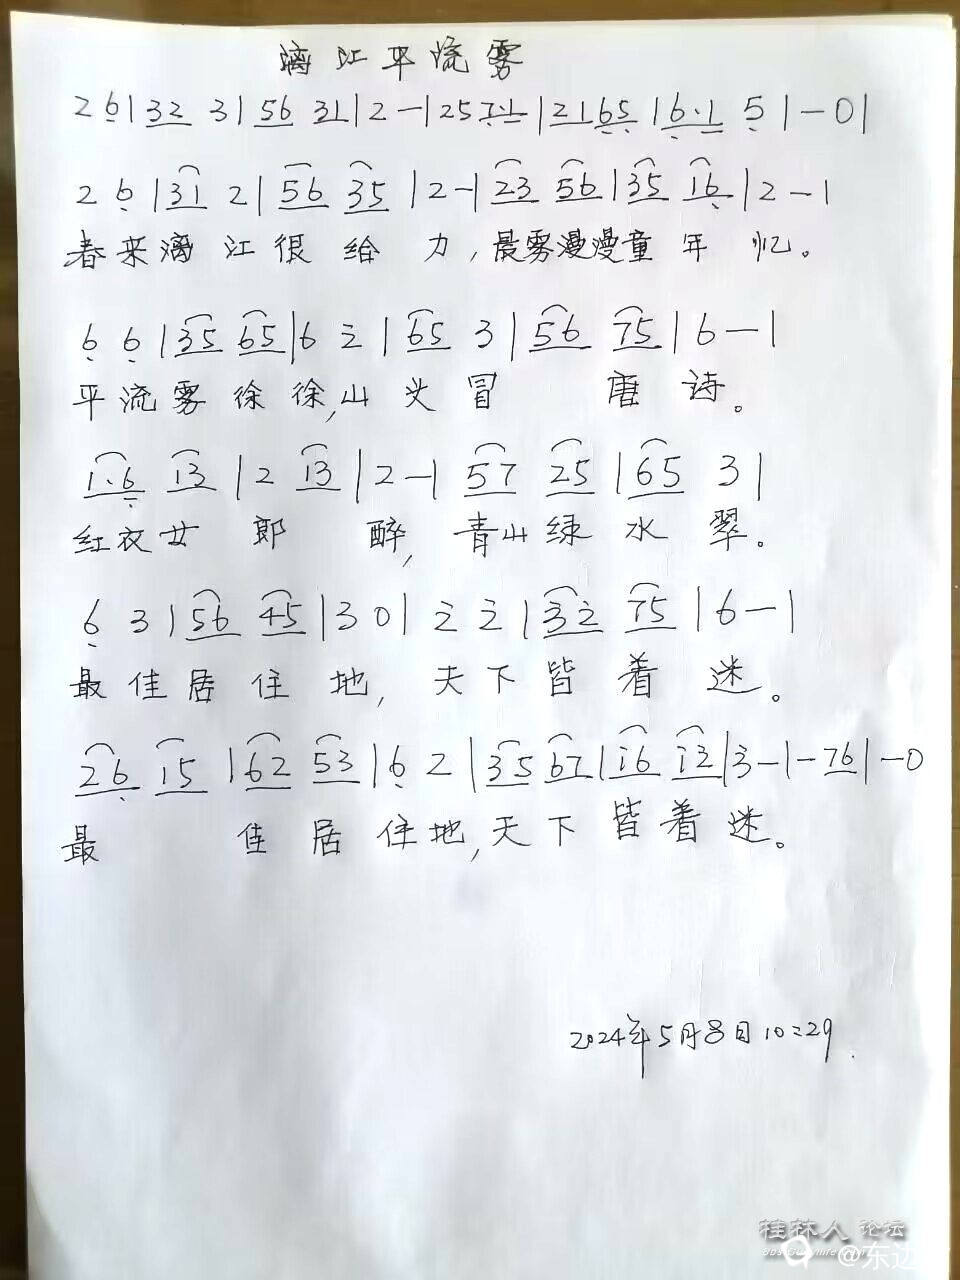 漓江平流雾
2 6̣ | 32 3 | 56 31 | 2 — | 25 7̣·1 | 21 6̣5̣ | 6̣·1 5̣ | — 0 |
2 6̣ | 31 2 | 56 35 | 2 — | 23 56 | 35 16̣ | 2 — |
春来漓江很给力,晨雾漫漫童年忆。
6̣ 6̣ | 35 65 | 6 2̇ | 65 3 | 56 75 | 6 — |
平流雾徐徐,山头冒唐诗。
1·6̣ 13 | 2 13 | 2 — | 57 25 | 65 3 |
红衣女郎醉,青山绿水翠。
6̣ 3 | 56 45 | 3 0 | 2̇ 2̇ | 3̇2̇ 75 | 6 — |
最佳居住地,天下皆着迷。
26̣ 15 | 62 53 | 6̣ 2 | 35 67 | 1̇6 1̇2̇ | 3̇ — | — 76 | — 0
最佳居住地,天下皆着迷。
2024年5月8日10:29.
桂林人论坛
@东边